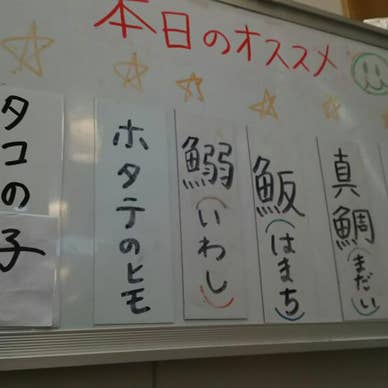 本日のオススメ
真鯛(まだい)
魬(はまち)
鰯(いわし)
ホタテのヒモ
タコの子